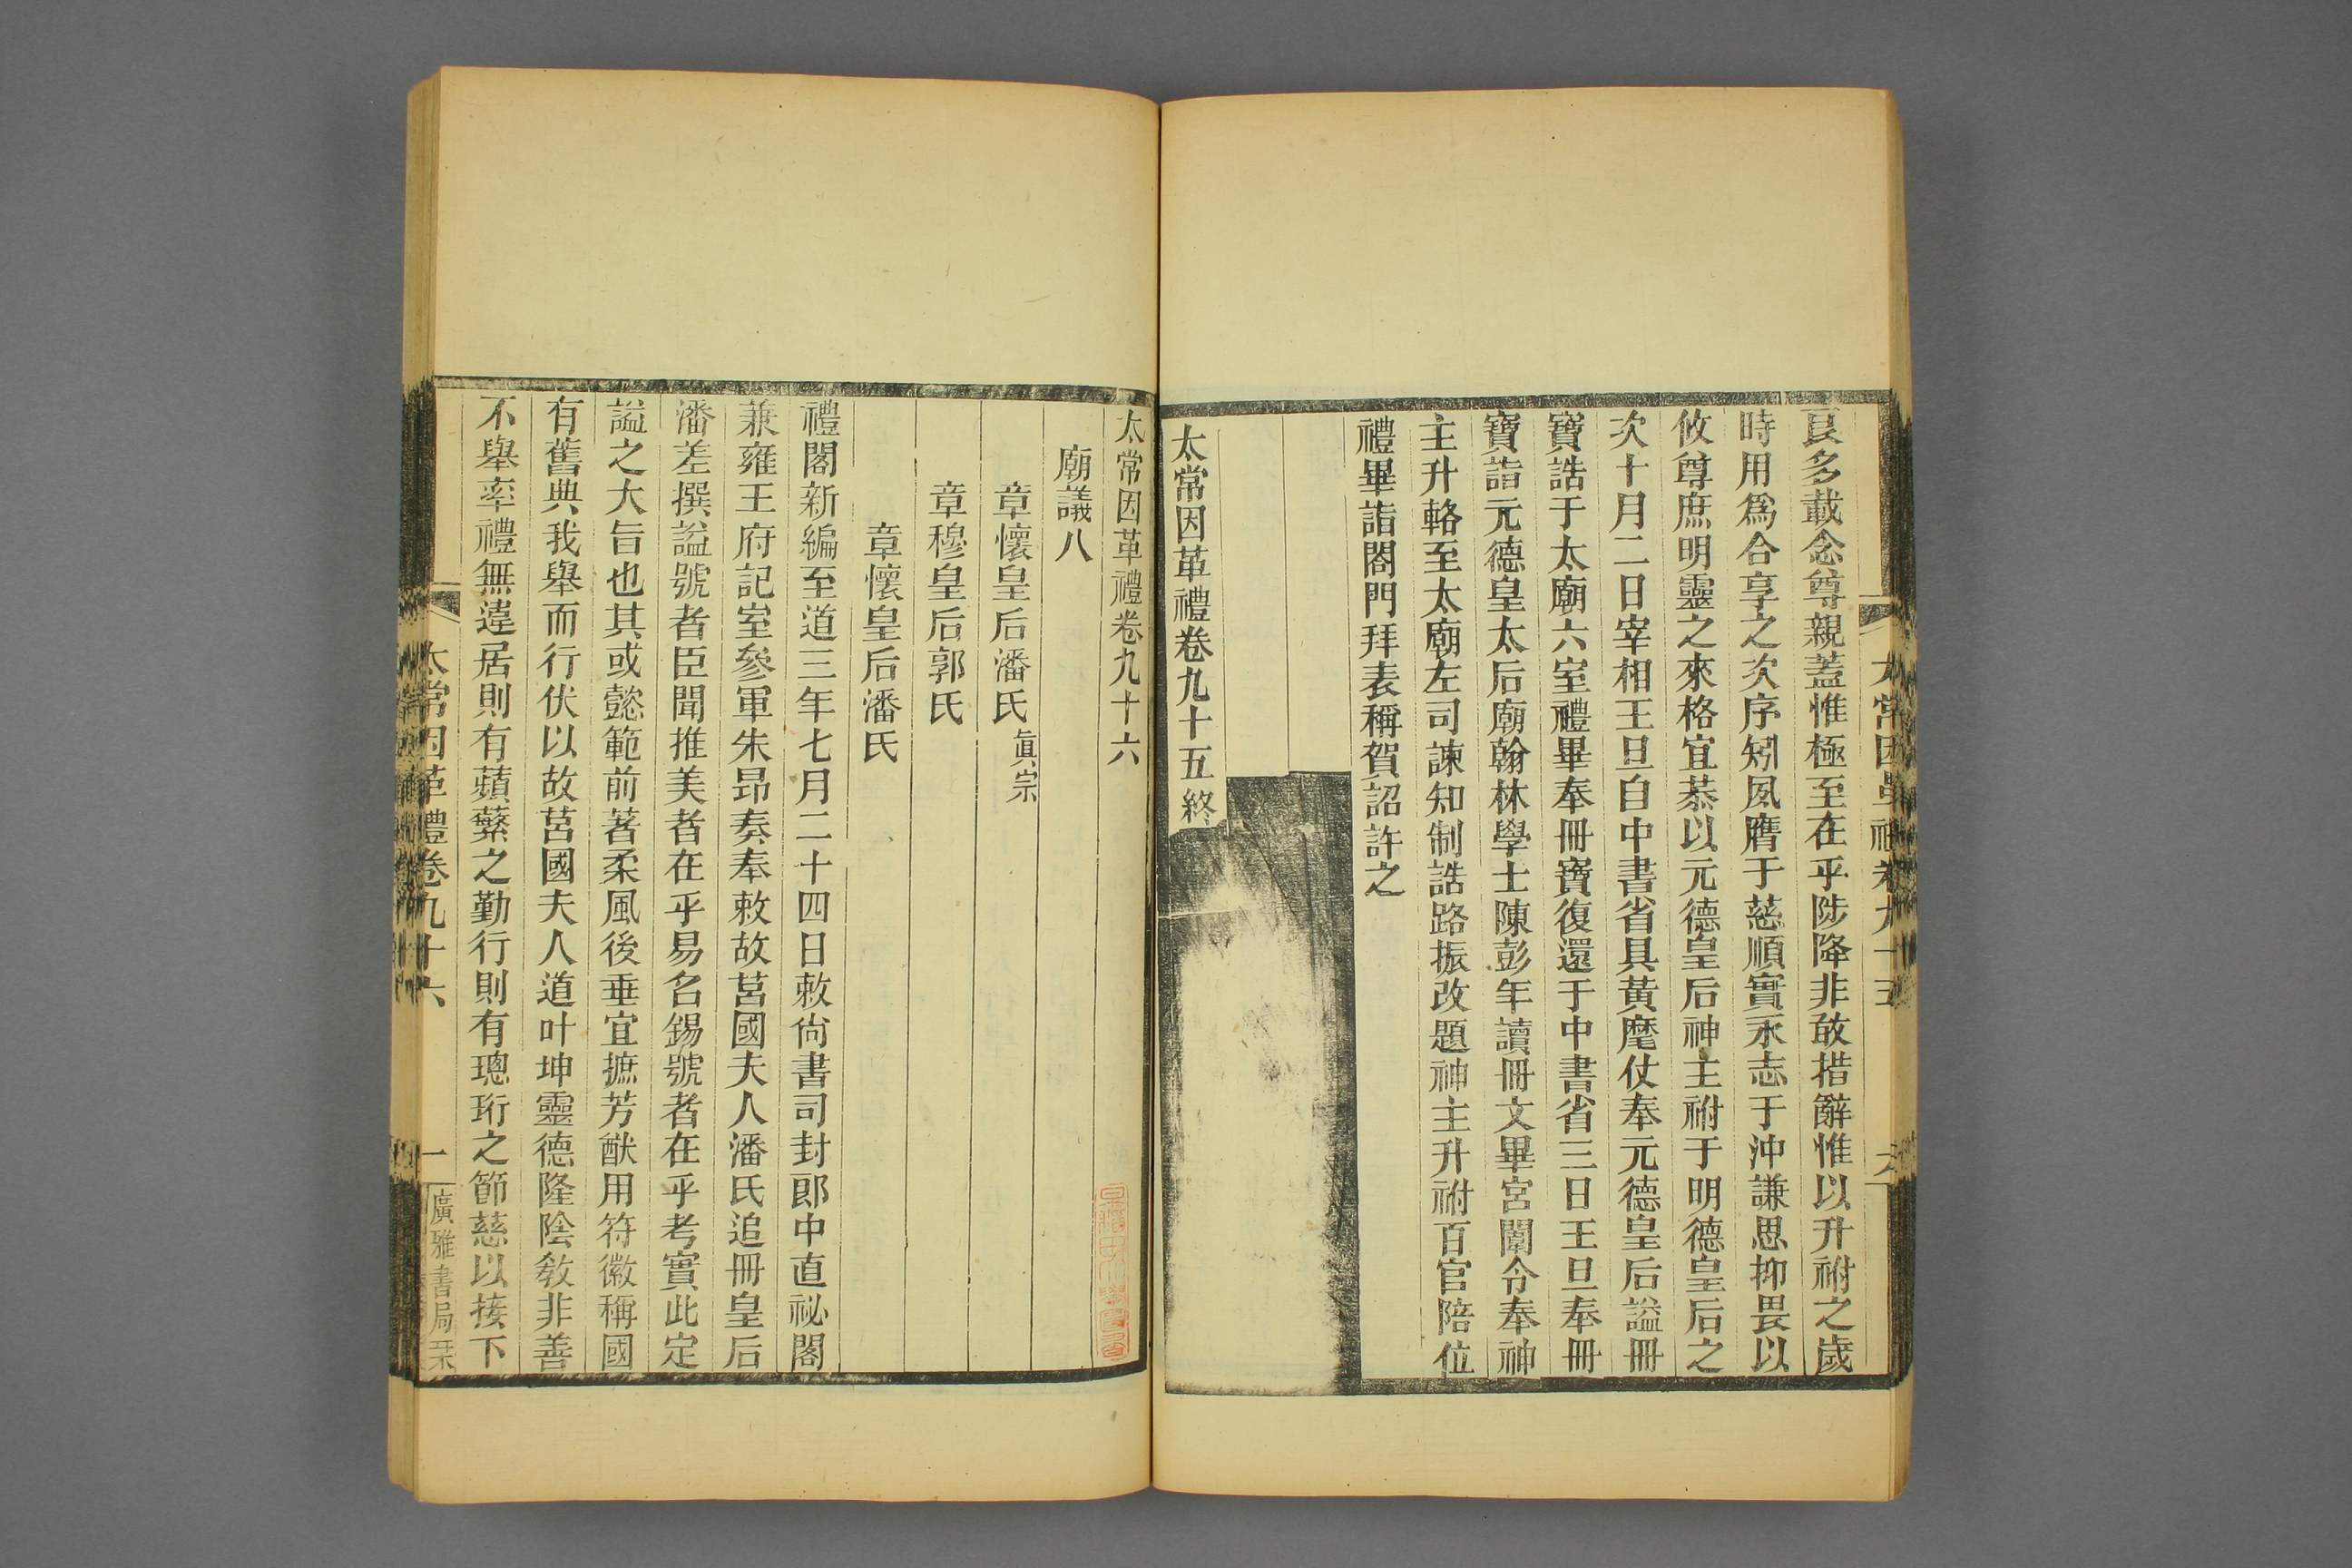 良多載念尊親蓋惟極至在乎陟降非敢措辭惟以升祔之歲
時用爲合享之次序矧夙膺于慈順實永志于沖謙思抑畏以
攸尊庶明靈之來格宜恭以元德皇后神主祔于明德皇后之
次十月二日宰相王旦自中書省具黃麾仗奉元德皇后謚冊
寶誥于太廟六室禮畢奉冊寶復還于中書省三日王旦奉冊
寶詣元德皇太后廟翰林學士陳彭年讀冊文畢宮闈令奉神
主升輅至太廟左司諫知制誥路振改題神主升祔百官陪位
禮畢詣閤門拜表稱賀詔許之
太常因革禮卷九十五終
太常因革禮卷九十六
廟議八
章懷皇后潘氏眞宗
章穆皇后郭氏
章懷皇后潘氏
禮閣新編至道三年七月二十四日敕尙書司封郎中直祕閣
兼雍王府記室參軍朱昂奏奉敕故莒國夫人潘氏追冊皇后
潘差撰謚號者臣聞推美者在乎易名錫號者在乎考實此定
謚之大旨也其或懿範前著柔風後垂宜摭芳猷用符徽稱國
有舊典我舉而行伏以故莒國夫人道叶坤靈德隆陰敎非善
不舉率禮無違居則有蘋蘩之勤行則有璁珩之節慈以接下
太常因革禮卷九十六
一
廣雅書局栞